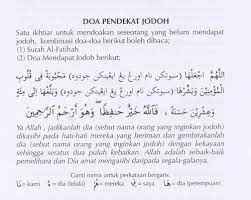 DOA PENDEKAT JODOH
Satu ikhtiar untuk mendoakan seseorang yang belum mendapat
jodoh, kombinasi doa-doa berikut boleh dibaca;
(1) Surah Al-Fatihah
(2) Doa Mendapat Jodoh berikut:
اللَّهُمَّ اجْعَلْهَا (سبوتكن نام اورڠ يڠ ايڠينكن جودوه) مَحْبُوبَةً فِي قُلُوبِ
وَعِشْرِينَ حَسَنَةً ، فَاللَّهُ خَيْرٌ حَفِظًا وَهُوَ أَرْحَمُ الرَّحِمِينَ
Ya Allah, jadikanlah dia (sebut nama orang yang inginkan jodoh)
dikasihi pada hati mereka yang beriman dan gembirakanlah dia
(sebut nama orang yang inginkan jodoh) dengan kekayaan
sehingga seratus dua puluh kebaikan. Allah adalah sebaik-baik
pemelihara dan Dia amat mengasihi daripada segala-galanya.
Ganti nama untuk perkataan bergaris.
= kami = dia (lelaki) = mereka = saya = dia (perempuan)